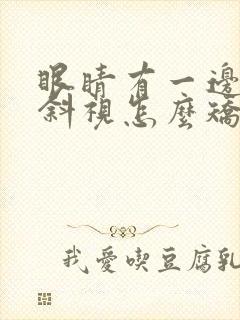 眼睛有一邊
斜視怎麼矯
我愛喫豆腐乳